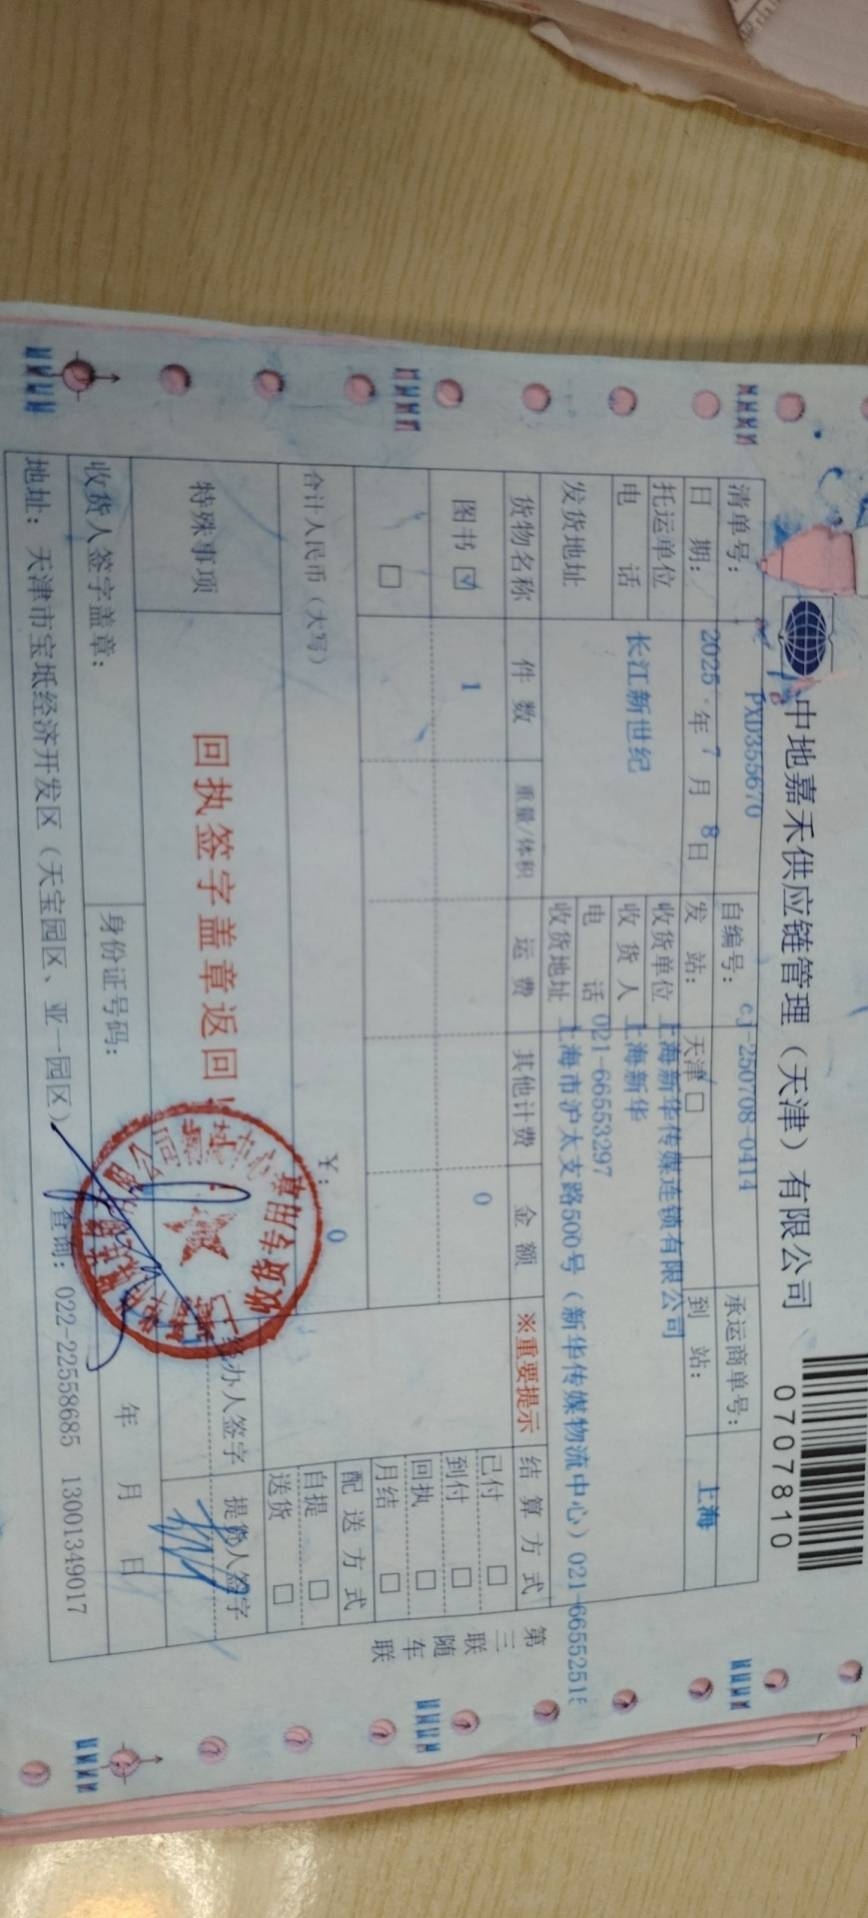 中地嘉禾供应链管理（天津）有限公司
0707810
清单号： PXD355670 自编号： cj-250708-0414 承运商单号：
日 期： 2025 年 7 月 8 日 发 站： 天津 □ 到 站： 上海
托运单位 长江新世纪 收货单位 上海新华传媒连锁有限公司
电 话 收 货 人 上海新华
电 话 021-66553297
发货地址 收货地址 上海市沪太支路500号（新华传媒物流中心）021-6655251
货物名称 件 数 重量/体积 运 费 其他计费 金 额 ※重要提示 结 算 方 式
图书 ☑ 1 0 已付 □
到付 □
□ 回执 □
月结 □
合计人民币（大写） ¥： 0 配 送 方 式
自提 □
送货 □
特殊事项 回执签字盖章返回！ 办人签字 提货人签字
收货人签字盖章： 身份证号码： 年 月 日
地址：天津市宝坻经济开发区（天宝园区、亚一园区） 查询：022-22558685 13001349017
第三联 随车联
收货专用章